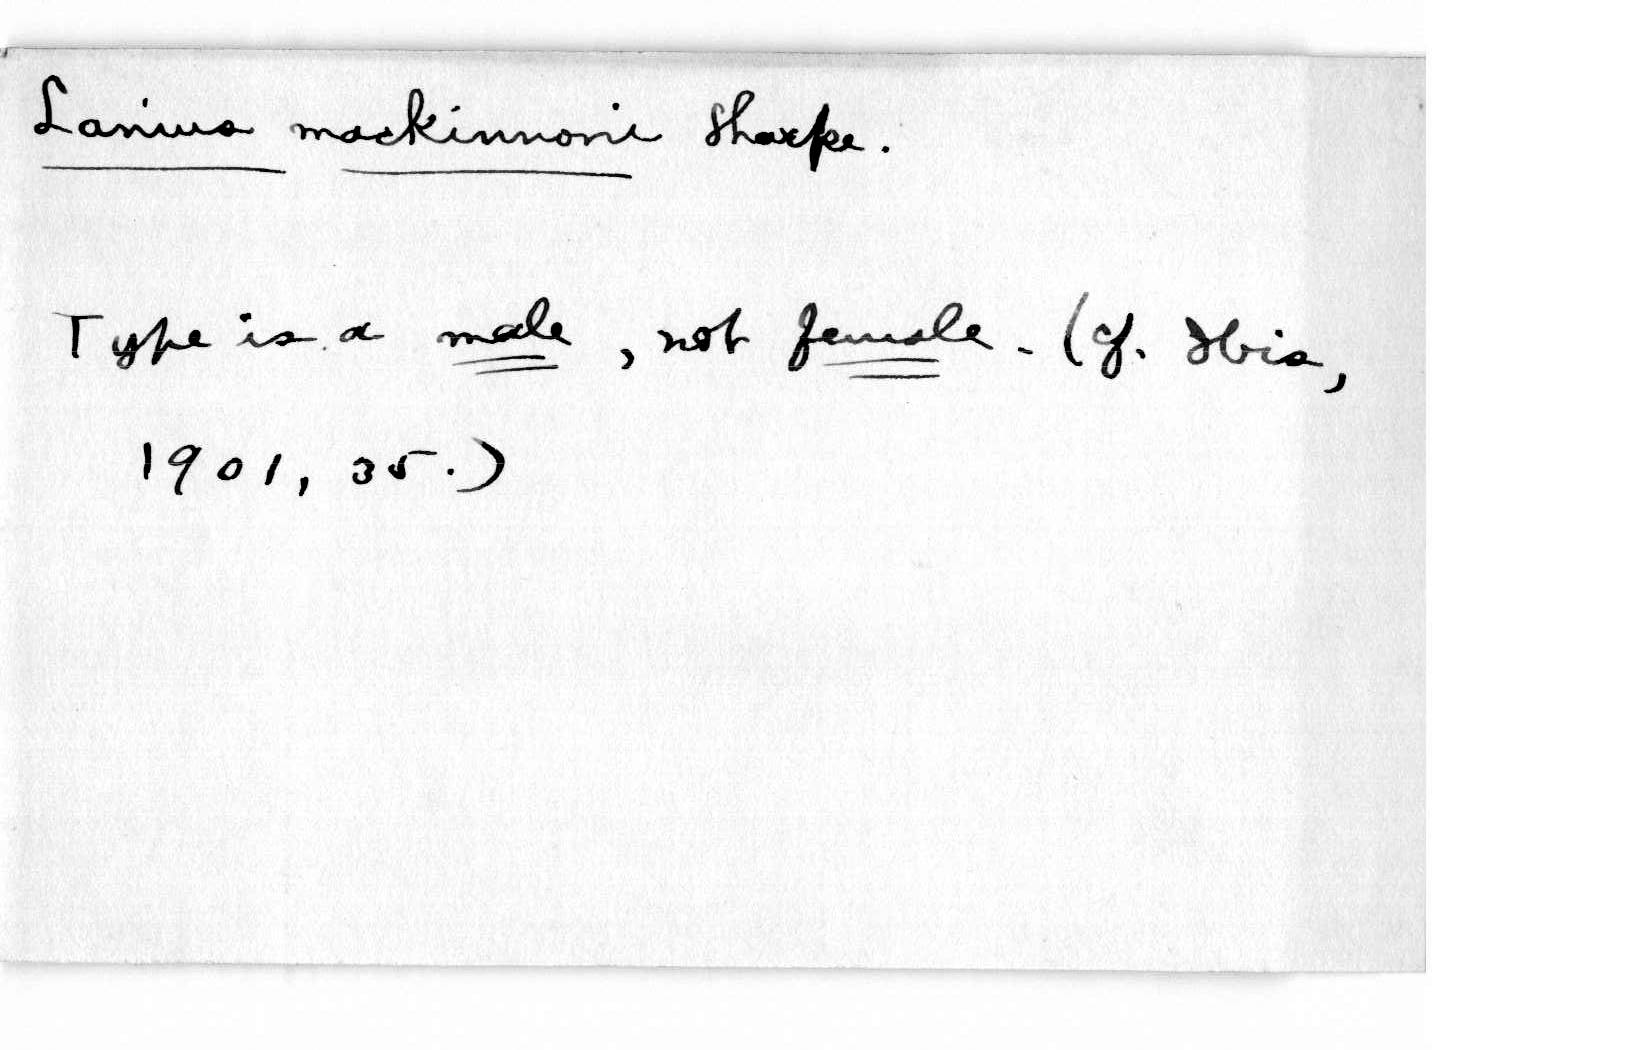 Lanius mackinnoni Sharpe.
Type is a male, not female. (cf. Ibis,
1901, 35.)